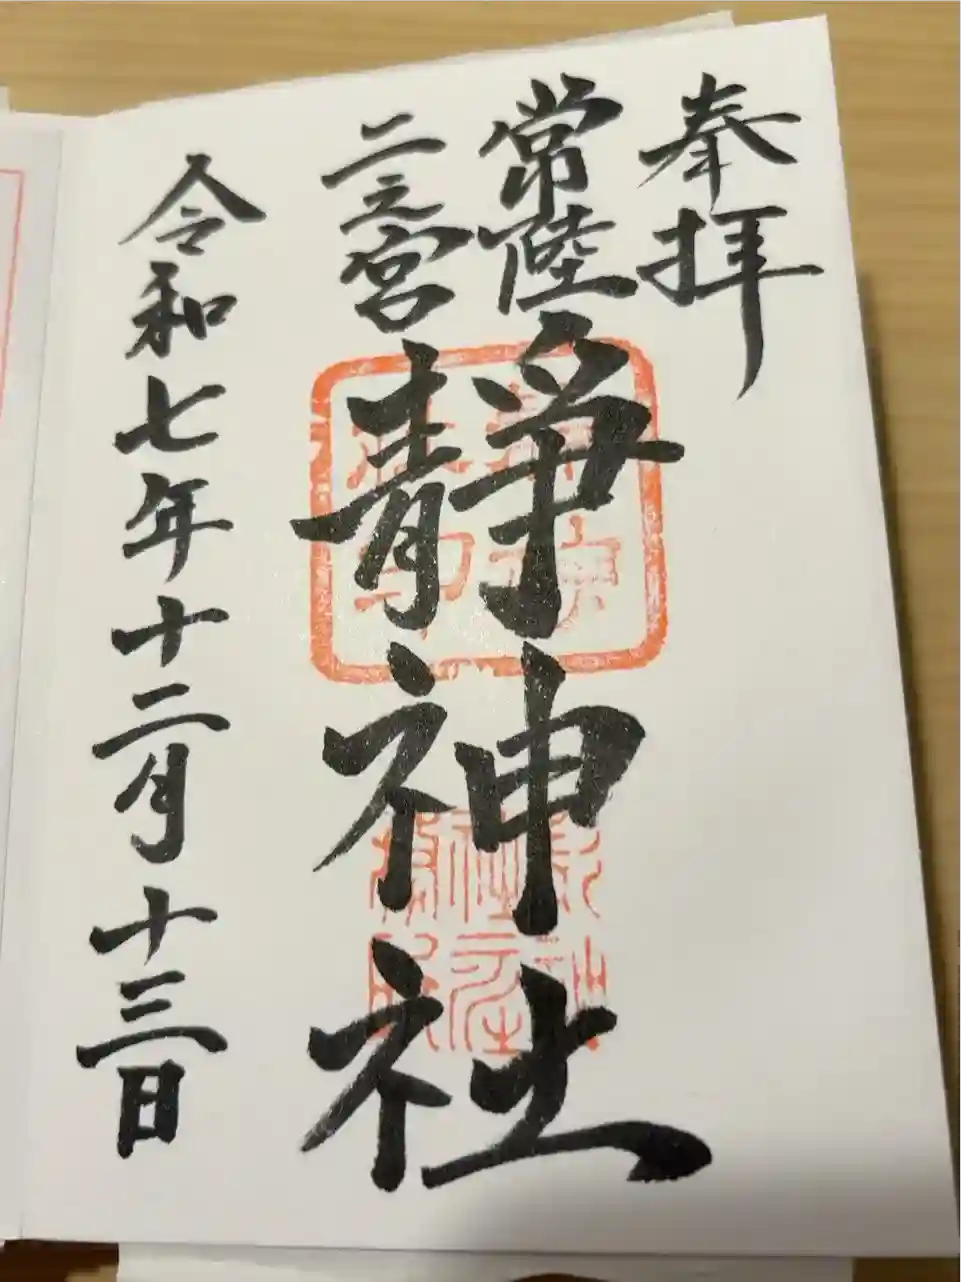 奉拝
常陸
二之宮
靜神社
令和七年十二月十三日